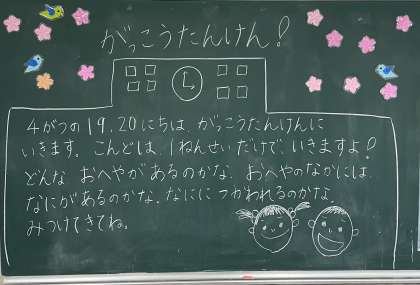 がっこうたんけん!
4がつの19.20にちは、がっこうたんけんに
いきます。こんどは、1ねんせいだけで、いきますよ!
どんな おへやがあるのかな、おへやのなかには、
なにがあるのかな、なにに つかわれるのかな、
みつけてきてね。